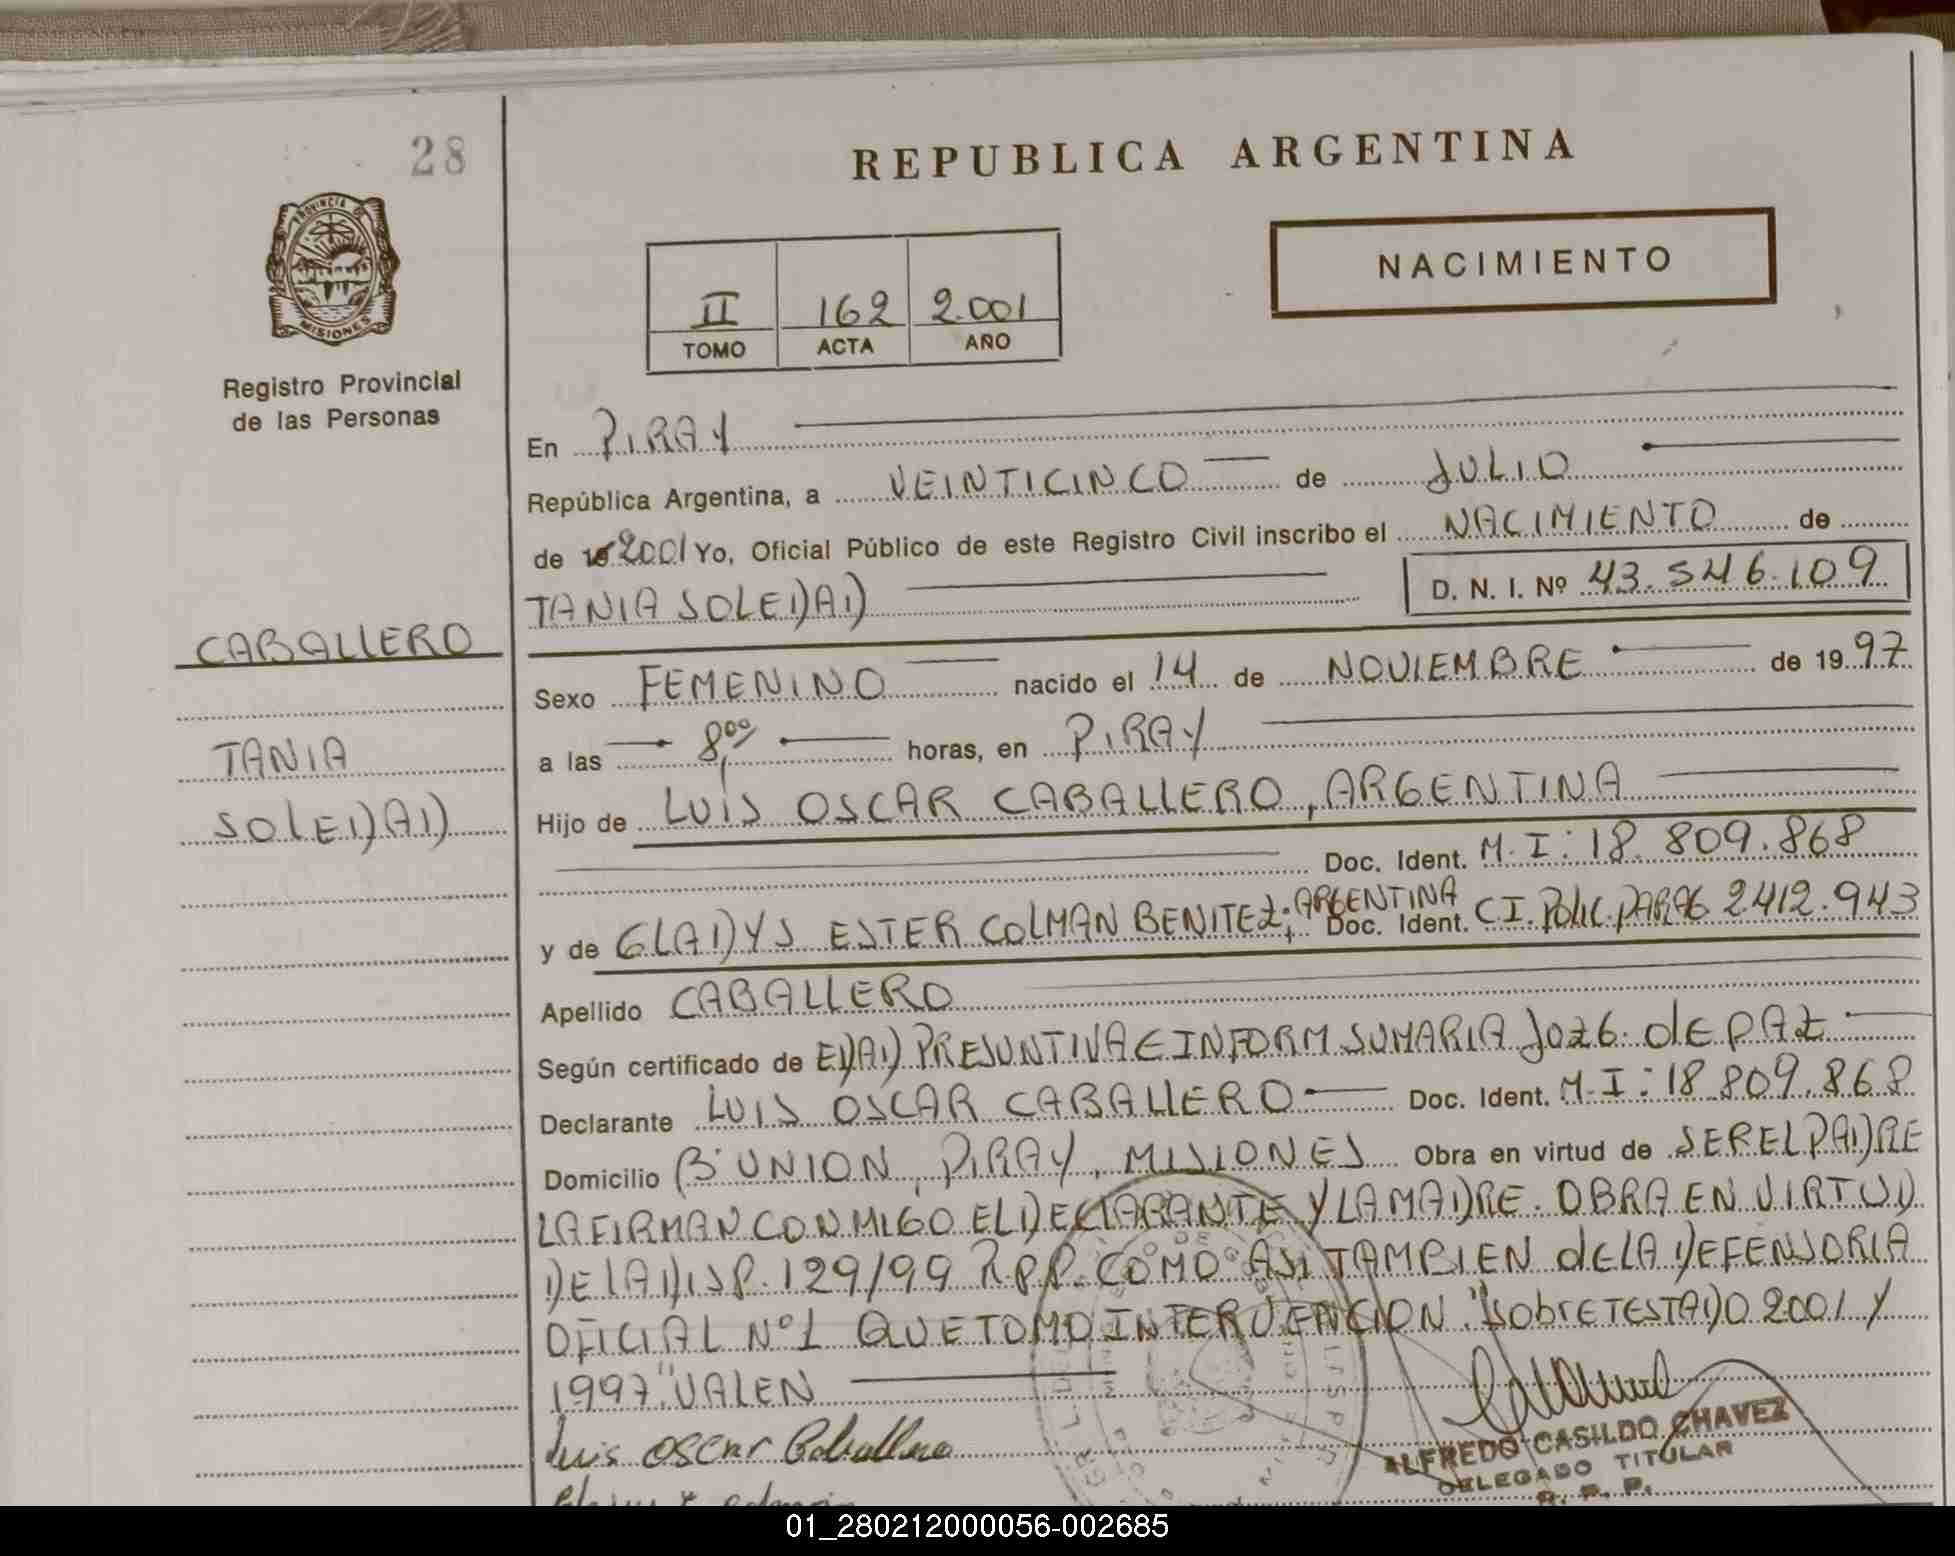 28
REPUBLICA ARGENTINA
PROVINCIA DE
MISIONES
NACIMIENTO
II 162 2.001
TOMO ACTA AÑO
Registro Provincial
de las Personas
En PIRAY
República Argentina, a VEINTICINCO de JULIO
de 2001 Yo, Oficial Público de este Registro Civil inscribo el NACIMIENTO de
TANIA SOLEDAD D. N. I. Nº 43.546.109
CABALLERO
Sexo FEMENINO nacido el 14 de NOVIEMBRE de 1997
TANIA
a las 8,00 horas, en PIRAY
SOLEDAD
Hijo de LUIS OSCAR CABALLERO, ARGENTINA
Doc. Ident. M.I: 18.809.868
y de GLADYS ESTER COLMAN BENITEZ; ARGENTINA Doc. Ident. CI. POLIC. PARAG 2412.943
Apellido CABALLERO
Según certificado de EDAD PRESUNTIVA E INFORM SUMARIA JUZG. DE PAZ
Declarante LUIS OSCAR CABALLERO Doc. Ident. M.I: 18.809.868
Domicilio Bº UNION, PIRAY, MISIONES Obra en virtud de SER EL PADRE
LA FIRMAN CONMIGO EL DECLARANTE Y LA MADRE. OBRA EN VIRTUD
DE LA DISP. 129/99 R.P.P. COMO ASI TAMBIEN DE LA DEFENSORIA
OFICIAL Nº1 QUE TOMO INTERVENCION. "SOBRETESTADO 2001 Y
1997" VALEN
Luis Oscar Caballero
ALFREDO CASILDO CHAVEZ
DELEGADO TITULAR
R. P. P.
01_280212000056-002685